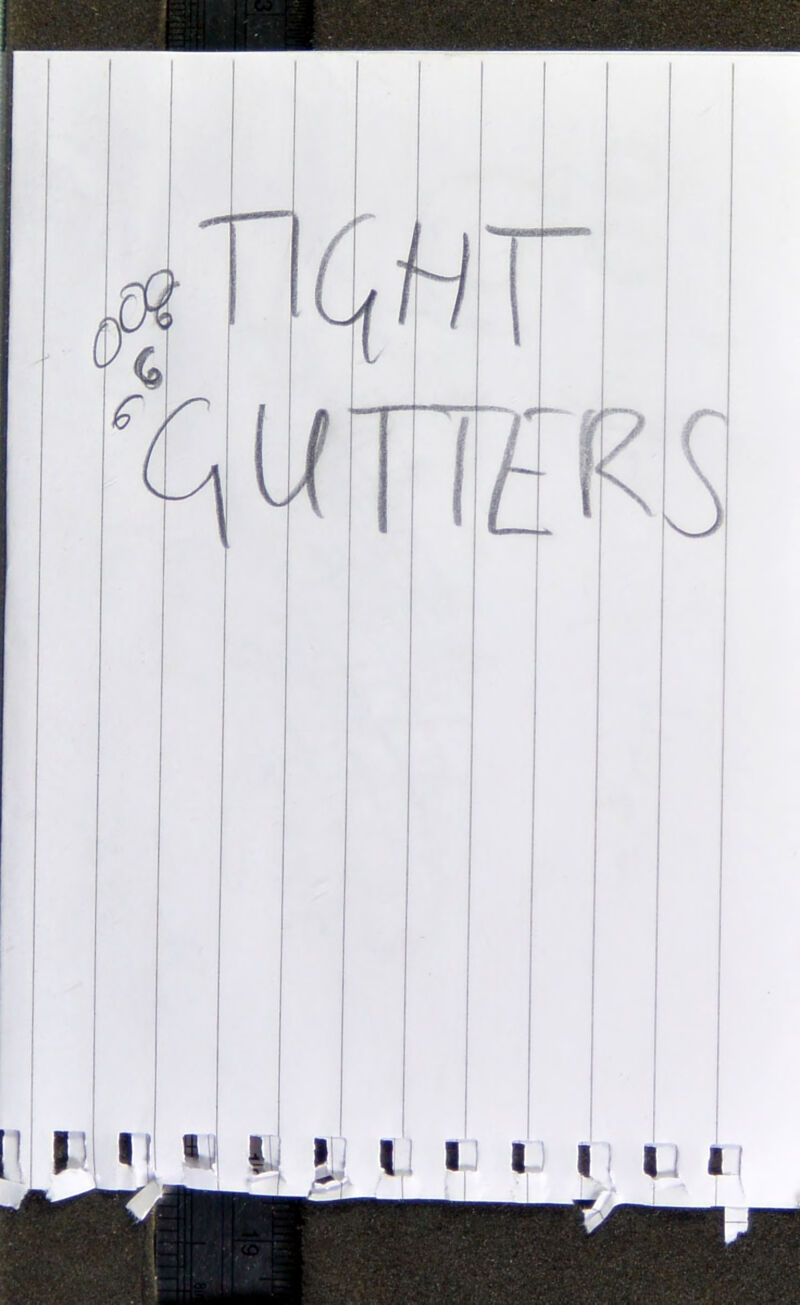 TIGHT
GUTTERS